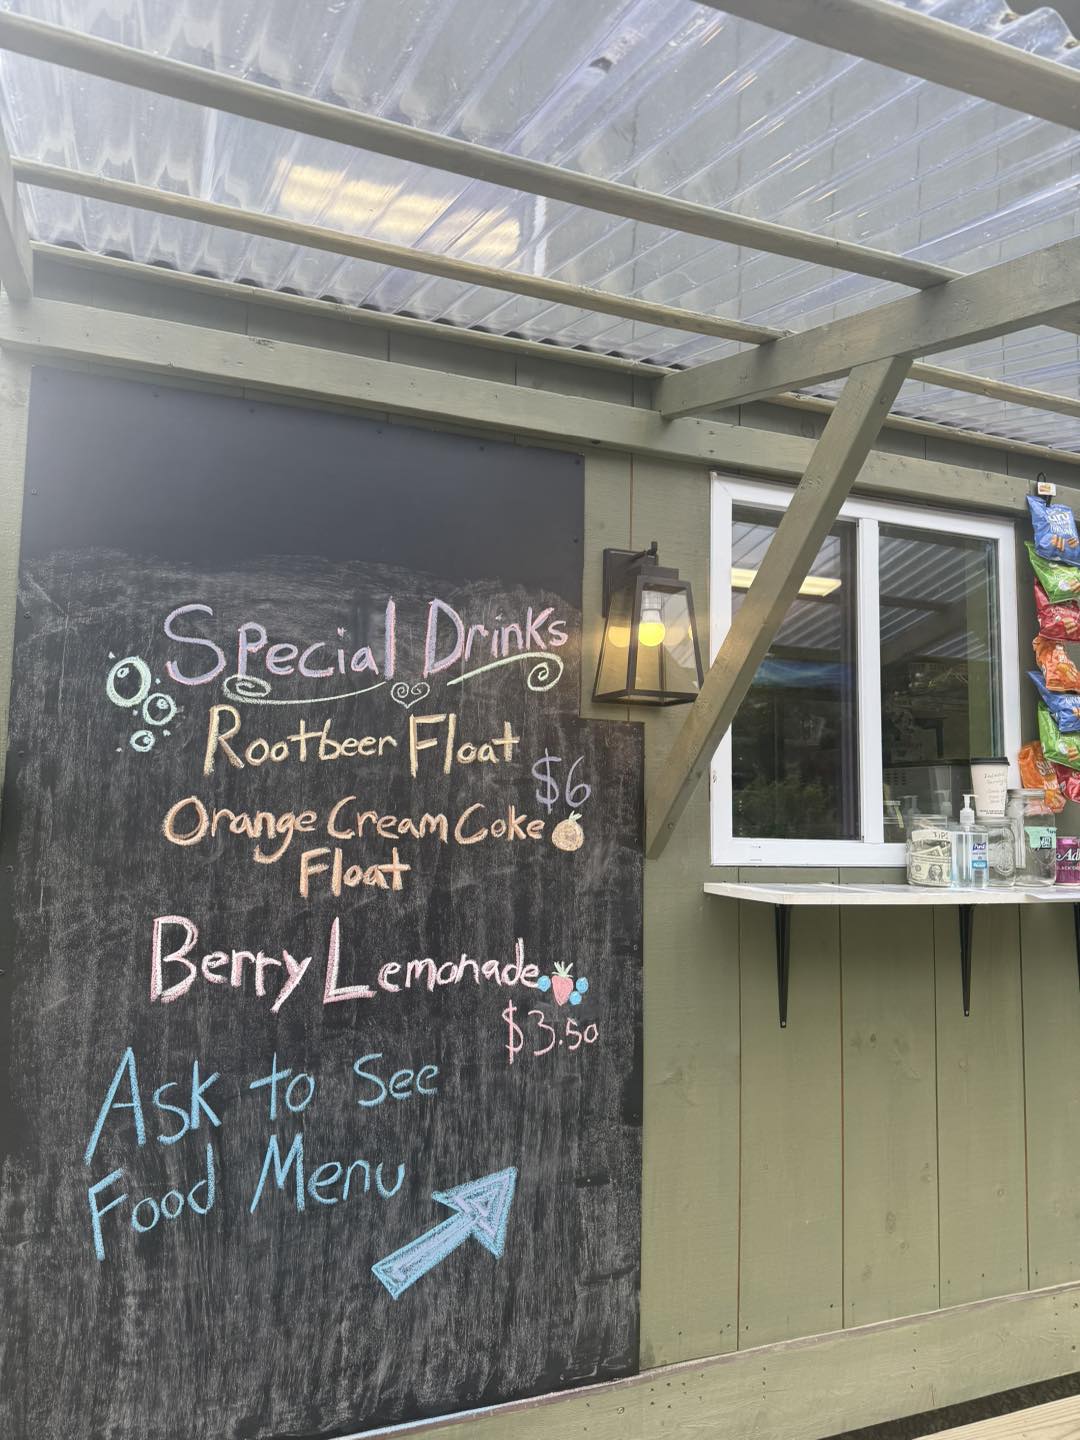 Special Drinks
Rootbeer Float
$6
Orange Cream Coke
Float
Berry Lemonade
$3.50
Ask to See
Food Menu
TIPS
Purell